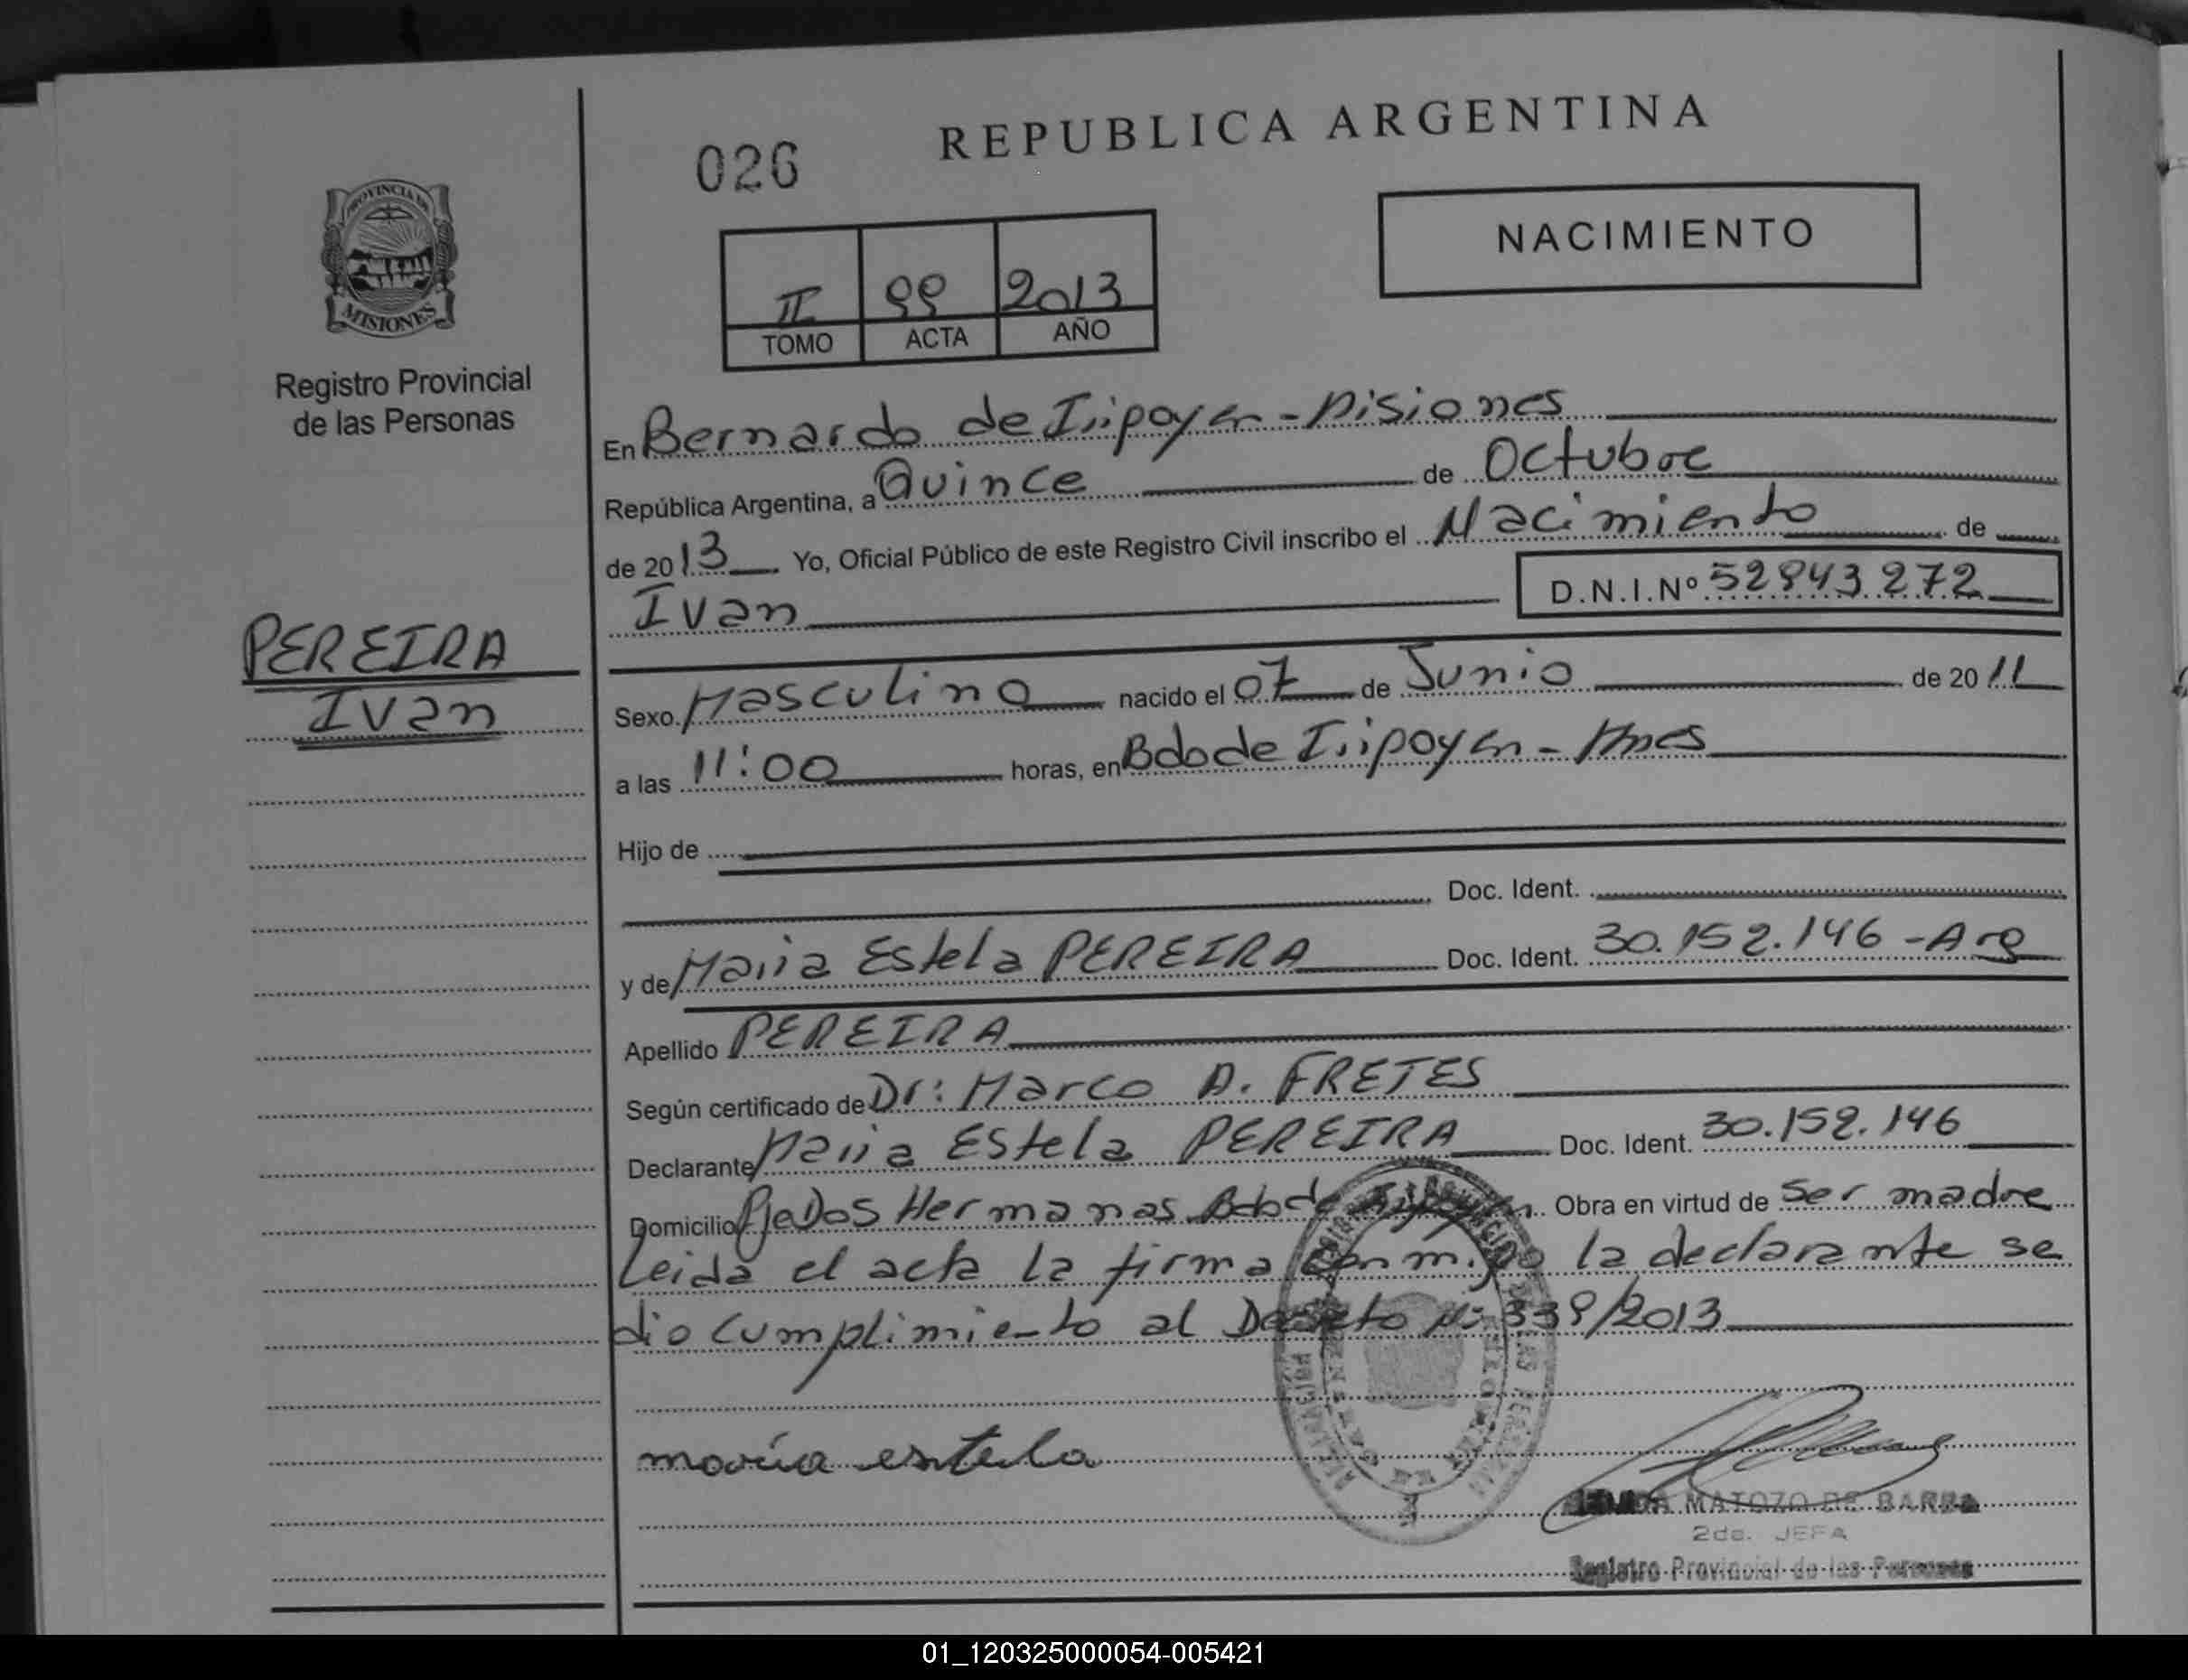 REPUBLICA ARGENTINA
026
PROVINCIA DE
MISIONES
Registro Provincial
de las Personas
NACIMIENTO
II 99 2013
TOMO ACTA AÑO
En Bernardo de Irigoyen - Misiones
República Argentina, a Quince de Octubre
de 2013 Yo, Oficial Público de este Registro Civil inscribo el Nacimiento de
Ivan D.N.I.Nº 52943272
PEREIRA
Ivan
Sexo Masculino nacido el 07 de Junio de 2011
a las 11:00 horas, en Bdo de Irigoyen - Mnes
Hijo de
Doc. Ident.
y de Maria Estela PEREIRA Doc. Ident. 30.152.146 - Arg
Apellido PEREIRA
Según certificado de Dr: Marco A. FRETES
Declarante Maria Estela PEREIRA Doc. Ident. 30.152.146
Domicilio Pje Dos Hermanas Bdo de Irigoyen Obra en virtud de Ser madre
Leida el acta la firma conmigo la declarante se
dio cumplimiento al Decreto Nº 339/2013
maría estela
MATOZO DE BARRA
2da. JEFA
Registro Provincial de las Personas
01_120325000054-005421